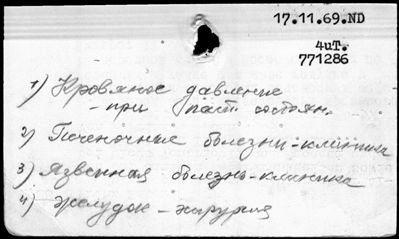 17.11.69.ND
4uT.
771286
1) Кровяное давление
- при пат. состоян.
2) Печеночные болезни - клиника
3) Язвенная болезнь - клиника
4) Желудок - хирургия